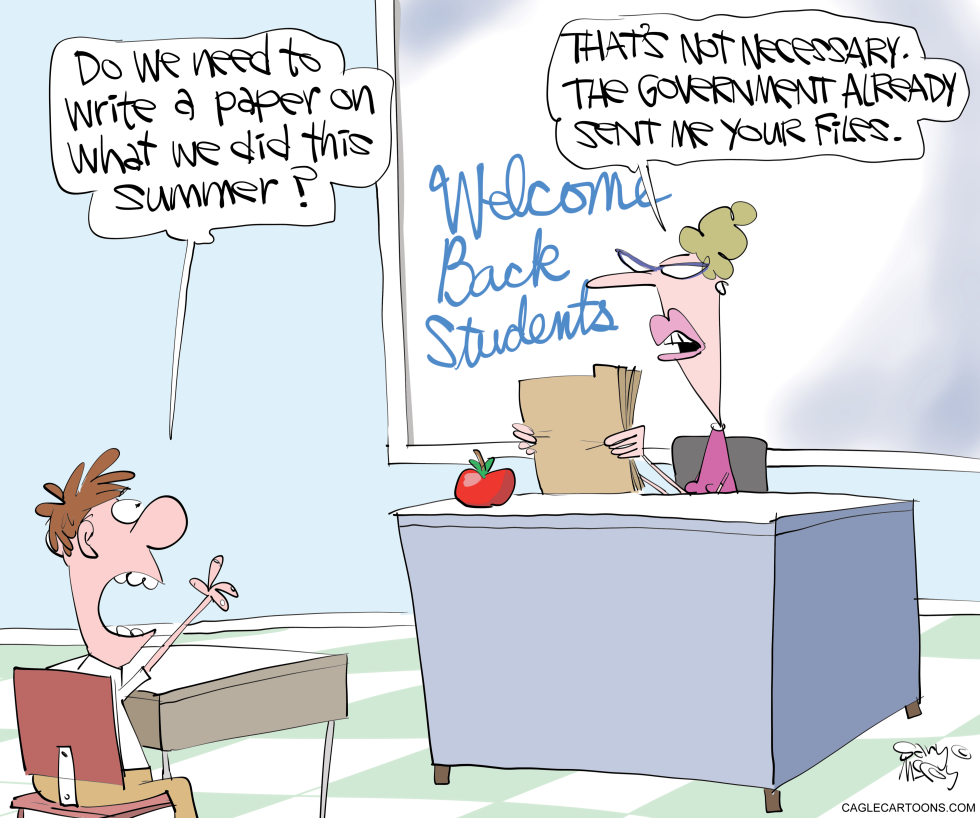 Do we need to
write a paper on
what we did this
summer?
THAT'S NOT NECESSARY.
THE GOVERNMENT ALREADY
SENT ME YOUR FILES.
Welcome
Back
Students
Gary ©
McCoy
CAGLECARTOONS.COM